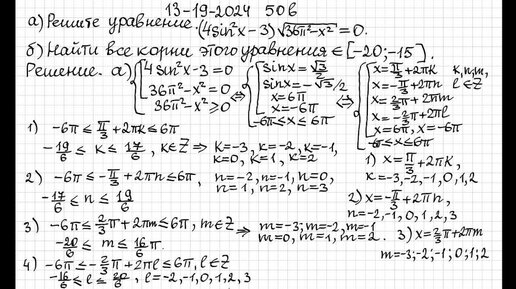 13-19-2024 50б
а) Решите уравнение. (4sin²x-3)√36π²-x² = 0.
б) Найти все корни этого уравнения ∈ [-20;-15].
Решение. а) { [ 4sin²x-3=0 36π²-x²=0 36π²-x²≥0 ⇔ { [ sinx=√3/2 sinx=-√3/2 x=6π x=-6π -6π≤x≤6π ⇔ { [ x=π/3+2πk k,n,m, x=-π/3+2πn l∈Z x=2/3π+2πm x=-2/3π+2πl x=6π, x=-6π -6π≤x≤6π
1) -6π ≤ π/3+2πk ≤ 6π
-19/6 ≤ k ≤ 17/6, k∈Z ⇒ k=-3, k=-2, k=-1, k=0, k=1, k=2
1) x=π/3+2πk, k=-3,-2,-1,0,1,2
2) -6π ≤ -π/3+2πn ≤ 6π, n=-2, n=-1, n=0, n=1, n=2, n=3
-17/6 ≤ n ≤ 19/6
2) x=-π/3+2πn, n=-2,-1,0,1,2,3
3) -6π ≤ 2/3π+2πm ≤ 6π, m∈Z ⇒ m=-3; m=-2, m=-1 m=0, m=1, m=2.
-20/6 ≤ m ≤ 16/6π.
3) x=2/3π+2πm
m=-3;-2;-1;0;1;2
4) -6π ≤ -2/3π+2πl ≤ 6π, l∈Z
-16/6 ≤ l ≤ 20/6, l=-2,-1,0,1,2,3